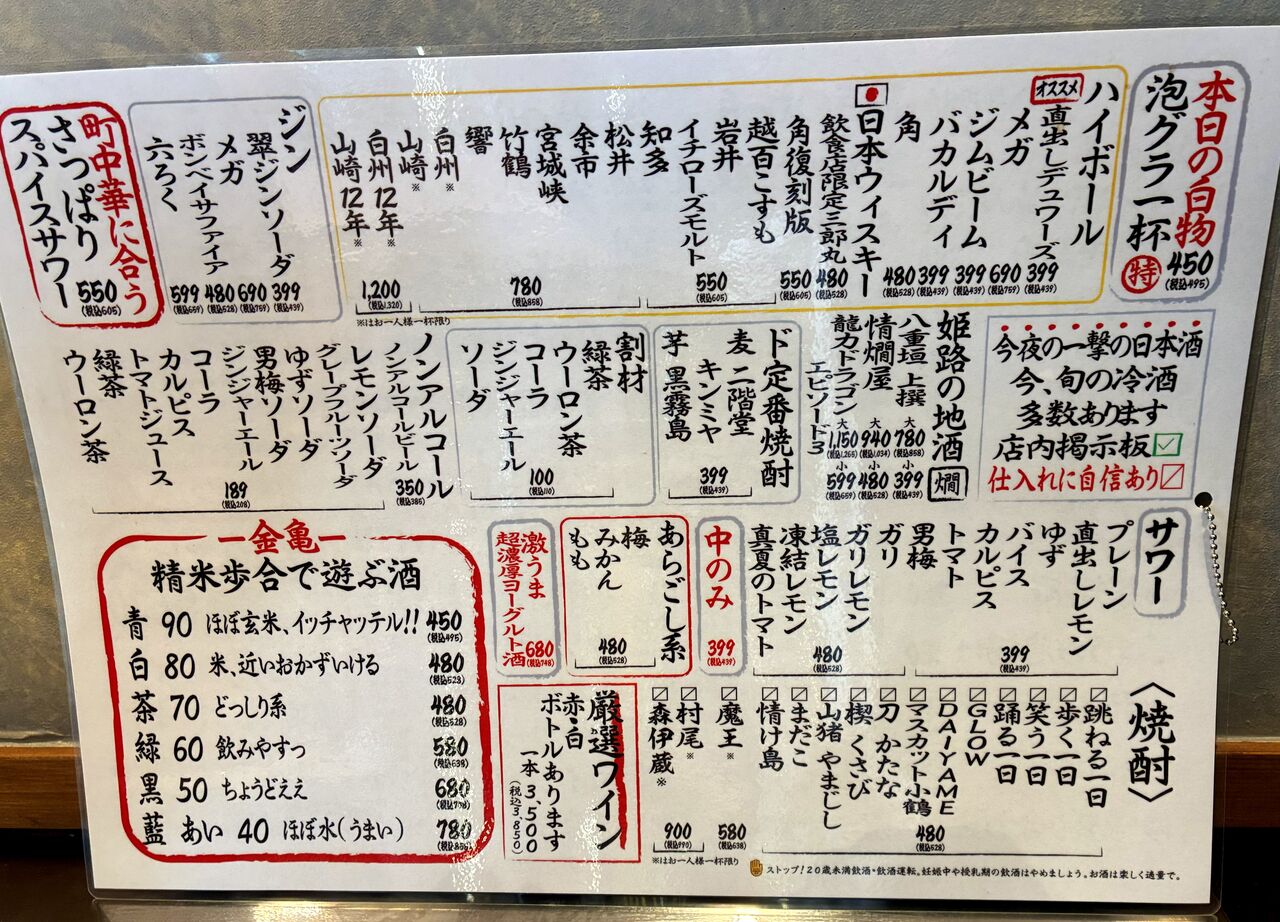 本日の白物
泡グラ一杯
特
450
(税込495)
ハイボール
オススメ
直出しデュワーズ
399
(税込439)
メガ
690
(税込759)
ジムビーム
399
(税込439)
バカルディ
399
(税込439)
角
480
(税込528)
日本ウィスキー
飲食店限定三郎丸
480
(税込528)
角復刻版
550
(税込605)
越百こすも
岩井
イチローズモルト
知多
550
(税込605)
松井
余市
宮城峡
竹鶴
響
白州※
山崎※
780
(税込858)
白州12年※
山崎12年※
1,200
(税込1,320)
※はお一人様一杯限り
ジン
翠ジンソーダ
399
(税込439)
メガ
690
(税込759)
ボンベイサファイア
480
(税込528)
六ろく
599
(税込659)
町中華に合う
さっぱり
スパイスサワー
550
(税込605)
今夜の一撃の日本酒
今、旬の冷酒
多数あります
店内掲示板
仕入れに自信あり
姫路の地酒
燗
八重垣 上撰
大
780
(税込858)
小
399
(税込439)
情燗屋
大
940
(税込1,034)
小
480
(税込528)
龍力ドラゴン
エピソード3
大
1,150
(税込1,265)
小
599
(税込659)
ド定番焼酎
麦 二階堂
キンミヤ
芋 黒霧島
399
(税込439)
割材
緑茶
ウーロン茶
コーラ
ジンジャーエール
ソーダ
100
(税込110)
ノンアルコール
ノンアルコールビール
350
(税込385)
レモンソーダ
グレープフルーツソーダ
ゆずソーダ
男梅ソーダ
ジンジャーエール
コーラ
カルピス
トマトジュース
緑茶
ウーロン茶
189
(税込208)
サワー
プレーン
直出しレモン
ゆず
バイス
カルピス
トマト
男梅
399
(税込439)
ガリ
ガリレモン
塩レモン
凍結レモン
真夏のトマト
480
(税込528)
中のみ
399
(税込439)
あらごし系
梅
みかん
もも
480
(税込528)
激うま
超濃厚ヨーグルト酒
680
(税込748)
金亀
精米歩合で遊ぶ酒
青 90 ほぼ玄米、イッチャッテル!! 450
(税込495)
白 80 米、近いおかずいける 480
(税込528)
茶 70 どっしり系 480
(税込528)
緑 60 飲みやすっ 580
(税込638)
黒 50 ちょうどええ 680
藍 あい 40 ほぼ水(うまい) 780
〈焼酎〉
跳ねる一日
歩く一日
笑う一日
踊る一日
GLOW
DAIYAME
マスカット小鶴
刀 かたな
楔 くさび
山猪 やまじし
まだこ
情け島
480
(税込528)
魔王※
580
(税込638)
村尾※
森伊蔵※
900
(税込990)
※はお一人様一杯限り
厳選ワイン
赤・白
ボトルあります
一本3,500
(税込3,850)
ストップ!20歳未満飲酒・飲酒運転。妊娠中や授乳期の飲酒はやめましょう。お酒は楽しく適量で。